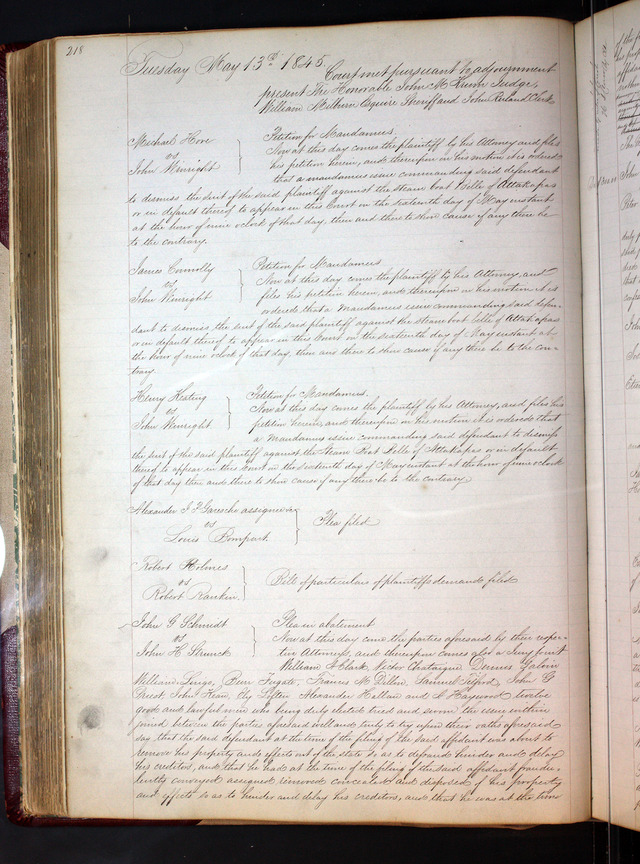 218
Tuesday May 13th 1845.
Court met pursuant to adjournment
present The Honorable John M Krum Judge,
William Milburn Esquire Sheriff and John Ruland Clerk
Michael Hore
vs
John Winright
Petition for Mandamus,
Now at this day comes the plaintiff by his Attorney and files
his petition herein, and thereupon on his motion it is ordered
that a mandamus issue commanding said defendant
to dismiss the suit of the said plaintiff against the steam boat Belle of Attakapas
or in default thereof to appear in this Court on the sixteenth day of May instant
at the hour of nine oclock of that day, then and there to shew cause if any there be
to the contrary.
James Connolly
vs
John Winright
Petition for Mandamus
Now at this day comes the plaintiff by his Attorney, and
files his petition herein, and thereupon on his motion it is
ordered that a Mandamus issue commanding said defen-
dant to dismiss the suit of the said plaintiff against the steam boat Belle of Attakapas
or in default thereof to appear in this Court on the sixteenth day of May instant at
the hour of nine oclock of that day, then and there to shew cause if any there be to the con-
trary.
Henry Keating
vs
John Winright
Petition for Mandamus.
Now at this day comes the plaintiff by his Attorney, and files his
petition herein, and thereupon on his motion it is ordered that
a Mandamus issue commanding said defendant to dismiss
the suit of the said plaintiff against the Steam Boat Belle of Attakapas or in default
thereof to appear in this Court on the sixteenth day of May instant at the hour of nine oclock
of that day then and there to shew cause if any there be to the contrary
Alexander J P Garesche assignee &c
vs
Louis Bompart.
Plea filed
Robert Holmes
vs
Robert Rankin.
Bill of particulars of plaintiffs demand filed
John G Schmidt
vs
John H Strunck
Plea in abatement
Now at this day come the parties aforesaid by their respec-
tive Attorneys, and thereupon comes also a Jury to wit
William S Clark, Victor Chataigne Dennis Galvin
William Lange, Peter Frigate, Francis M Dillon, Samuel John G
Priest, John Alexander Hellan and S Haywood twelve
good and lawful men who being duly elected tried and sworn the issue within
joined between the parties aforesaid well and truly to try upon their oaths aforesaid
say that the said defendant at the time of the filing of the said affidavit was about to
remove his property and effects out of the state so as to defraud hinder and delay
his creditors, and that he had at the time of the filing of the said affidavit fraudu-
lently conveyed assigned removed concealed and disposed of his property
and effects so as to hinder and delay his creditors, and that he was at the time